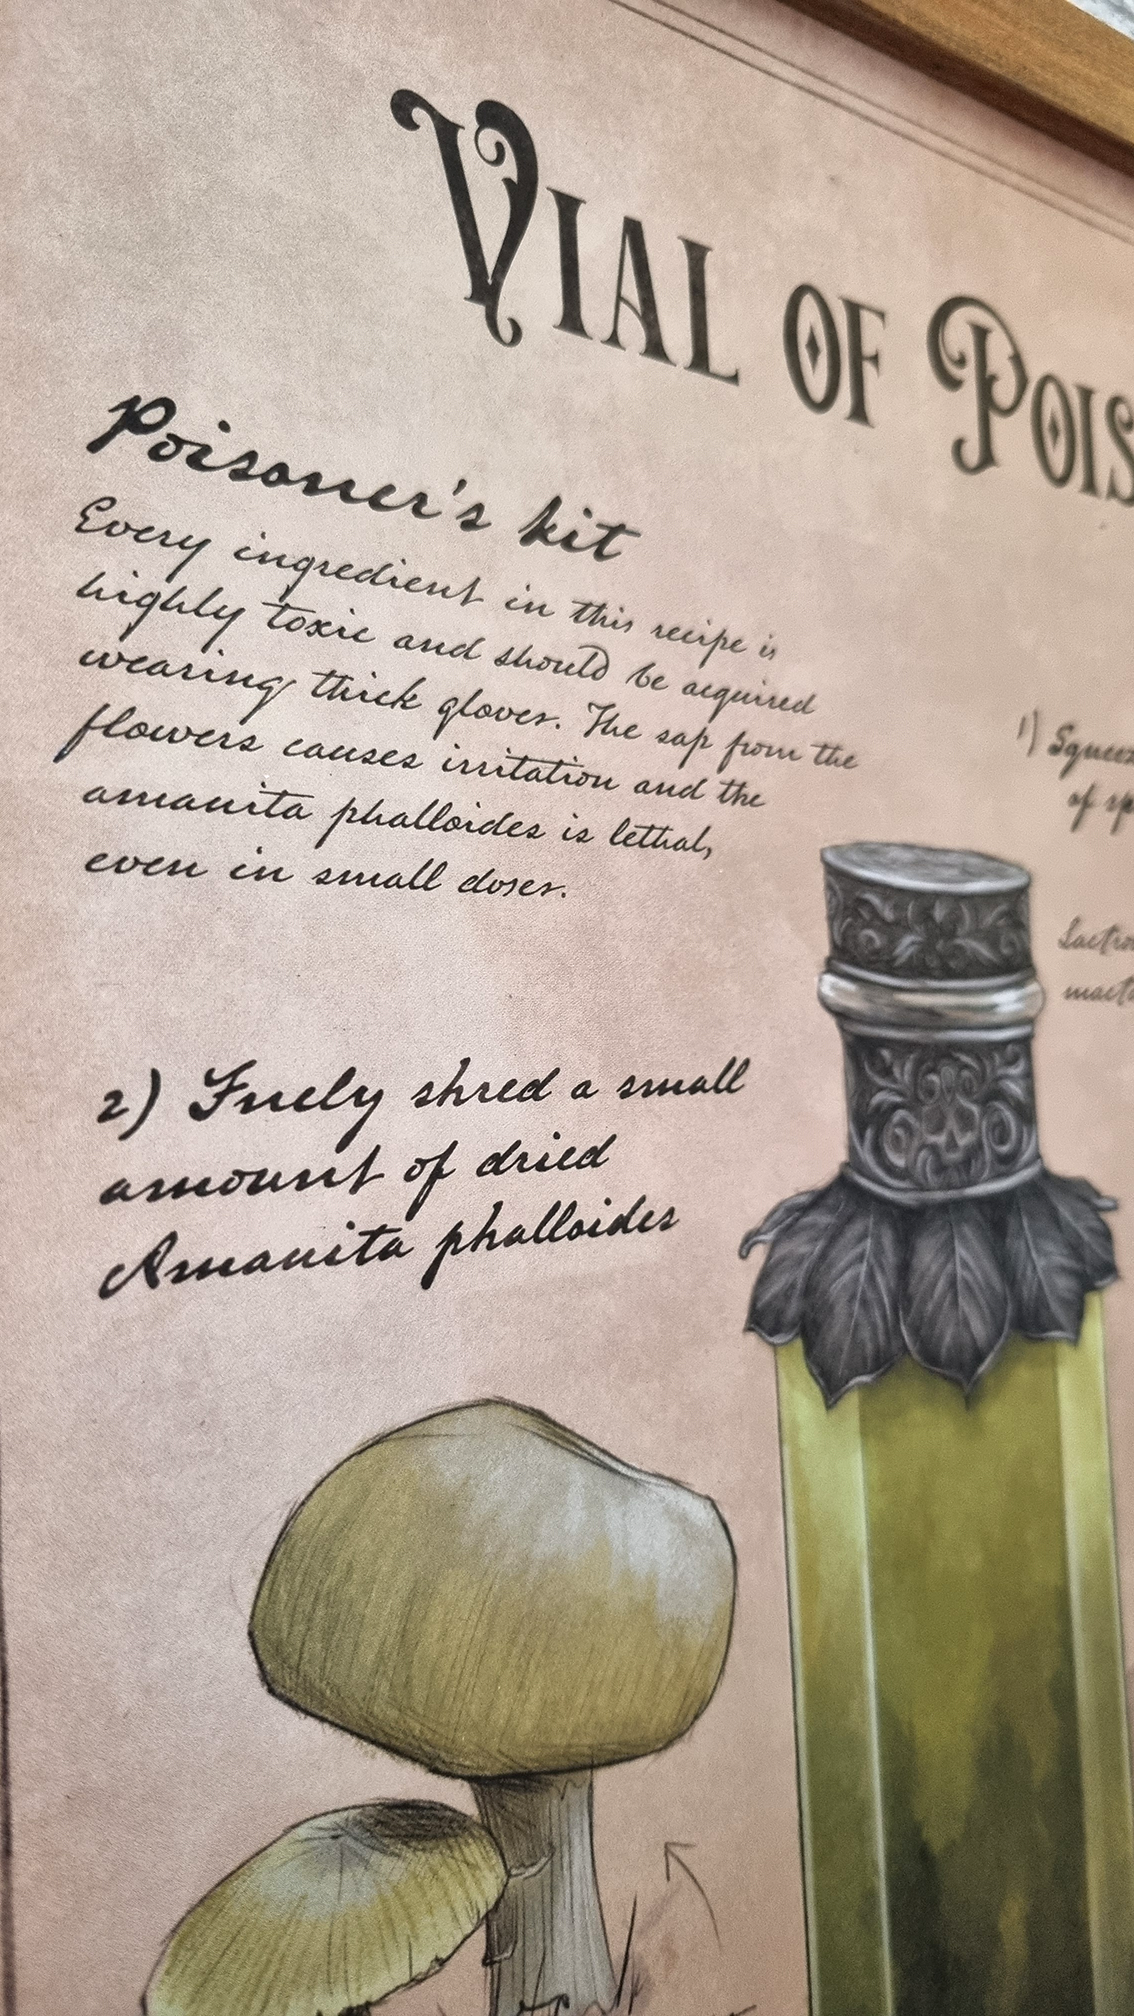 VIAL OF POIS
Poisoner's kit
Every ingredient in this recipe is
highly toxic and should be acquired
wearing thick gloves. The sap from the
flowers causes irritation and the
amanita phalloides is lethal,
even in small doses.
1) Squeez
of sp
2) Finely shred a small
amount of dried
Amanita phalloides